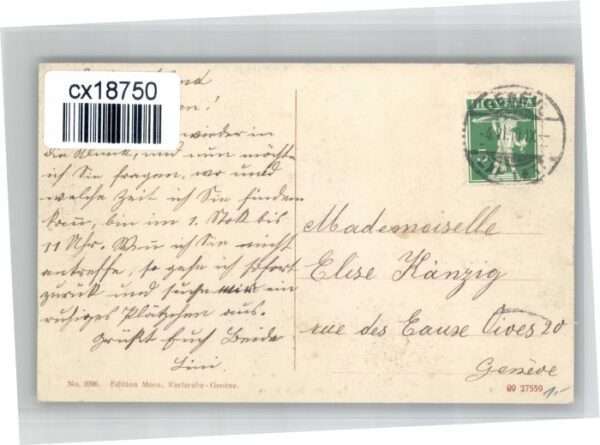 cx18750
wieder in
die Klinik, und nun möchte
ich Sie fragen, wo und
welche Zeit ich Sie finden
kann, bin im 1. Stok bis
11 Uhr. Wenn ich Sie nicht
antreffe, so gehe ich sofort
zurück und suche mir ein
ruhiges Plätzchen aus.
Grüßt Euch Beide
Lini.
Mademoiselle
Elise Känzig
rue des Eaux Vives 20
Genève
No. 1096. Edition Moos, Karlsruhe-Genève.
09 27550